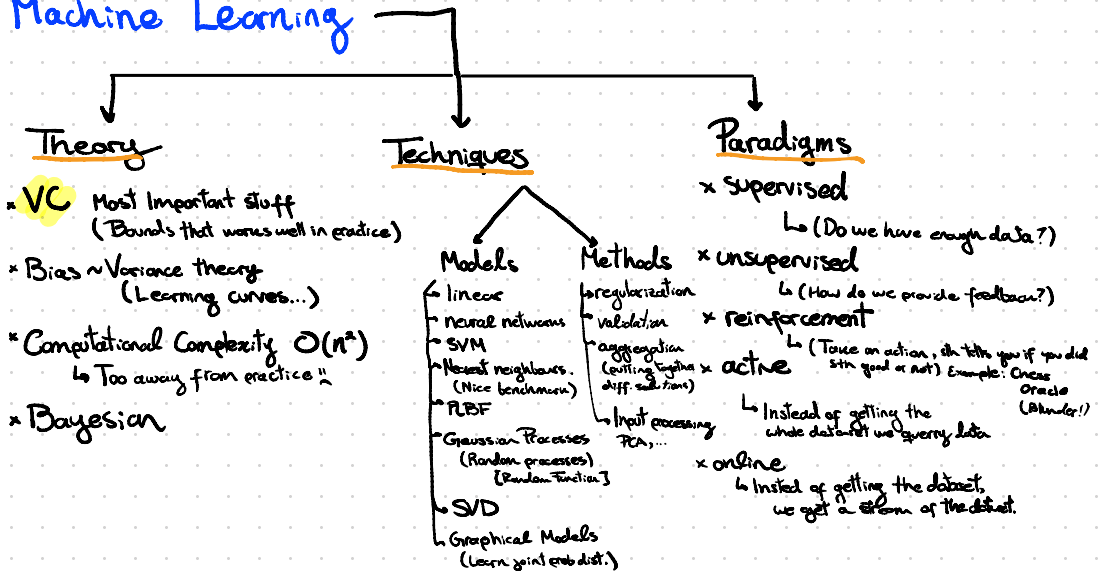 Machine Learning
Theory
* VC Most Important stuff
(Bounds that works well in practice)
* Bias ~ Variance theory
(Learning curves...)
* Computational Complexity O(n²)
↳ Too away from practice
* Bayesian
Techniques
Models
↳ linear
neural networks
SVM
Nearest neighbours.
(Nice benchmark)
RBF
Gaussian Processes
(Random processes)
[Random Function]
SVD
Graphical Models
(Learn joint prob dist.)
Methods
↳ regularization
validation
aggregation
(putting together
diff. solutions)
Input processing
PCA,...
Paradigms
* supervised
↳ (Do we have enough data?)
* unsupervised
↳ (How do we provide feedback?)
* reinforcement
↳ (Take an action, sth tells you if you did
sth good or not) Example: Chess
Oracle
(Blunder!)
* active
↳ Instead of getting the
whole dataset we querry data
* online
↳ Insted of getting the dataset,
we get a stream of the dataset.